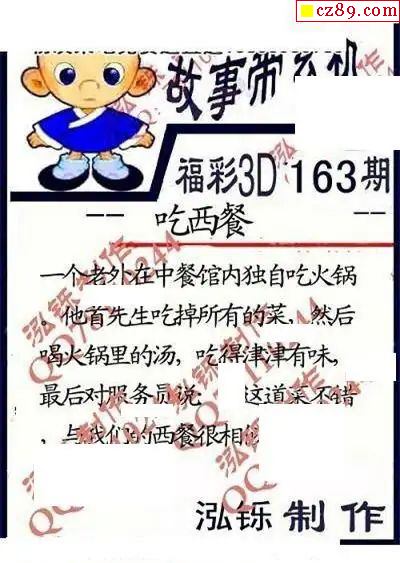 cz89.com
故事带玄机
福彩3D 163期
-- 吃西餐 --
一个老外在中餐馆内独自吃火锅
。他首先生吃掉所有的菜，然后
喝火锅里的汤，吃得津津有味，
最后对服务员说： 这道菜不错
，与我们的西餐很相似
泓铄制作